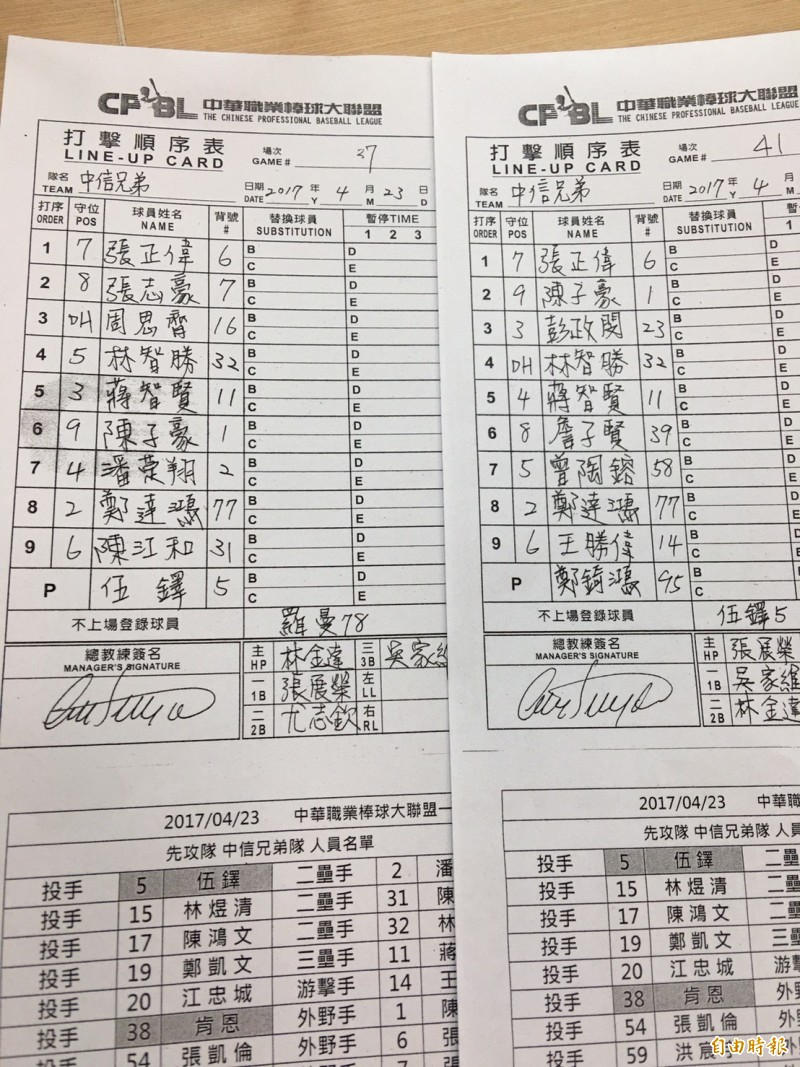 CPBL 中華職業棒球大聯盟
THE CHINESE PROFESSIONAL BASEBALL LEAGUE
打擊順序表 場次 37
LINE-UP CARD GAME #
隊名 中信兄弟 日期 2017 年 4 月 23 日
TEAM DATE Y M D
打序 守位 球員姓名 背號 替換球員 暫停TIME
ORDER POS NAME # SUBSTITUTION 1 2 3
1 7 張正偉 6 B D
C E
2 8 張志豪 7 B D
C E
3 DH 周思齊 16 B D
C E
4 5 林智勝 32 B D
C E
5 3 蔣智賢 11 B D
C E
6 9 陳子豪 1 B D
C E
7 4 潘榮翔 2 B D
C E
8 2 鄭達鴻 77 B D
C E
9 6 陳江和 31 B D
C E
P 伍鐸 5 B D
C E
不上場登錄球員 羅曼78
總教練簽名
MANAGER'S SIGNATURE
主HP 林金達 三3B 吳家維
一1B 張展榮 左LL
二2B 尤志欽 右RL
2017/04/23 中華職業棒球大聯盟一
先攻隊 中信兄弟隊 人員名單
投手 5 伍鐸 二壘手 2 潘
投手 15 林煜清 二壘手 31 陳
投手 17 陳鴻文 二壘手 32 林
投手 19 鄭凱文 三壘手 11 蔣
投手 20 江忠城 游擊手 14 王
投手 38 肯恩 外野手 1 陳
投手 54 張凱倫 外野手 6 張
外野手 7
CPBL 中華職業棒球大聯盟
THE CHINESE PROFESSIONAL BASEBALL LEAGUE
打擊順序表 場次 41
LINE-UP CARD GAME #
隊名 中信兄弟 日期 2017 年 4 月
TEAM DATE Y M
打序 守位 球員姓名 背號 替換球員 暫
ORDER POS NAME # SUBSTITUTION 1
1 7 張正偉 6 B D
C E
2 9 陳子豪 1 B D
C E
3 3 彭政閔 23 B D
C E
4 DH 林智勝 32 B D
C E
5 4 蔣智賢 11 B D
C E
6 8 詹子賢 39 B D
C E
7 5 曾陶鎔 58 B D
C E
8 2 鄭達鴻 77 B D
C E
9 6 王勝偉 14 B D
C E
P 鄭錡鴻 95 B D
C E
不上場登錄球員 伍鐸5
總教練簽名
MANAGER'S SIGNATURE
主HP 張展榮
一1B 吳家維
二2B 林金達
2017/04/23 中華職
先攻隊 中信兄弟隊 人員
投手 5 伍鐸 二壘
投手 15 林煜清 二壘
投手 17 陳鴻文 二壘
投手 19 鄭凱文 三壘
投手 20 江忠城 游擊
投手 38 肯恩 外野
投手 54 張凱倫 外野
投手 59 洪宸宇 外
自由時報